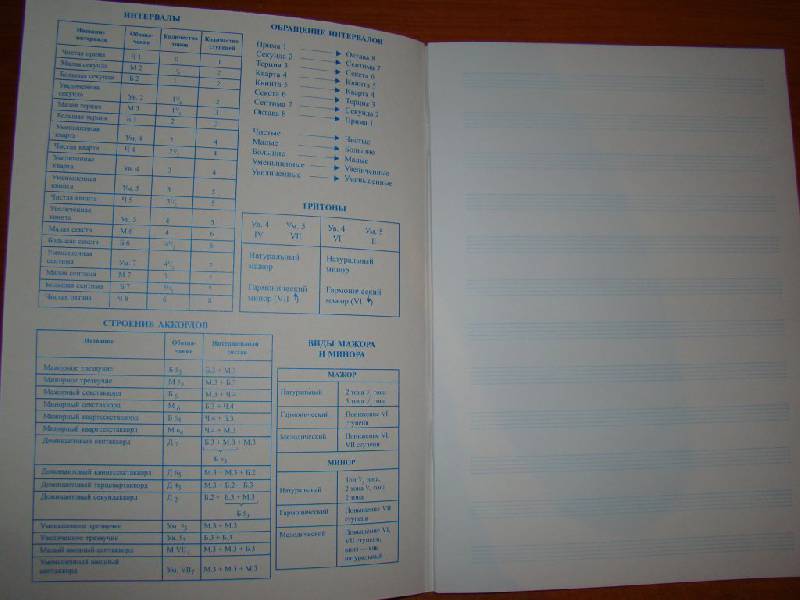 ИНТЕРВАЛЫ
Название интервалов
Обозна-чение
Количество тонов
Количество ступеней
Чистая прима Ч 1 0 1
Малая секунда М.2 2
Большая секунда Б.2 2
Увеличенная секунда Ув. 2
Малая терция М.3 3
Большая терция Б.3 2
Уменьшенная кварта Ум. 4 4
Чистая кварта Ч 4 4
Увеличенная кварта Ув. 4 3 4
Уменьшенная квинта Ум. 5 3 5
Чистая квинта Ч.5 5
Увеличенная квинта Ув. 5 4
Малая секста М.6 4 6
Большая секста Б.6 6
Уменьшенная септима Ум. 7
Малая септима М.7
Большая септима Б.7
Чистая октава Ч.8 6 8
ОБРАЩЕНИЕ ИНТЕРВАЛОВ
Прима 1 Октава 8
Секунда 2 Септима 7
Терция 3 Секста 6
Кварта 4 Квинта 5
Квинта 5 Кварта 4
Секста 6 Терция 3
Септима 7 Секунда 2
Октава 8 Прима 1
Чистые Чистые
Малые Большие
Большие Малые
Уменьшенные Увеличенные
Увеличенные Уменьшенные
ТРИТОНЫ
Ув. 4 Ум. 5 Ув. 4 Ум. 5
IV VII VI II
Натуральный Натуральный
мажор минор
Гармонический Гармонический
минор (VII) мажор (VI)
СТРОЕНИЕ АККОРДОВ
Название
Обозна-чение
Интервальный состав
Мажорное трезвучие Б 53 Б.3 + М.3
Минорное трезвучие М 53 М.3 + Б.3
Мажорный секстаккорд Б 6 М.3 + Ч.4
Минорный секстаккорд М 6 Б.3 + Ч.4
Мажорный квартсекстаккорд Б 64 Ч.4 + Б.3
Минорный квартсекстаккорд М 64 Ч.4 + М.3
Доминантовый септаккорд Д 7 Б.3 + М.3 + М.3
Б 53
Доминантовый квинтсекстаккорд Д 65 М.3 + М.3 + Б.2
Доминантовый терцквартаккорд Д 43 М.3 + Б.2 + Б.3
Доминантовый секундаккорд Д 2 Б.2 + Б.3 + М.3
Б 53
Уменьшенное трезвучие Ум. 53 М.3 + М.3
Увеличенное трезвучие Ув. 53 Б.3 + Б.3
Малый вводный септаккорд М VII7 М.3 + М.3 + Б.3
Уменьшенный вводный септаккорд Ум. VII7 М.3 + М.3 + М.3
ВИДЫ МАЖОРА
И МИНОРА
МАЖОР
Натуральный
Гармонический Понижение VI ступени
Мелодический Понижение VI, VII ступени
МИНОР
Натуральный
Гармонический Повышение VII ступени
Мелодический Повышение VI, VII ступени,